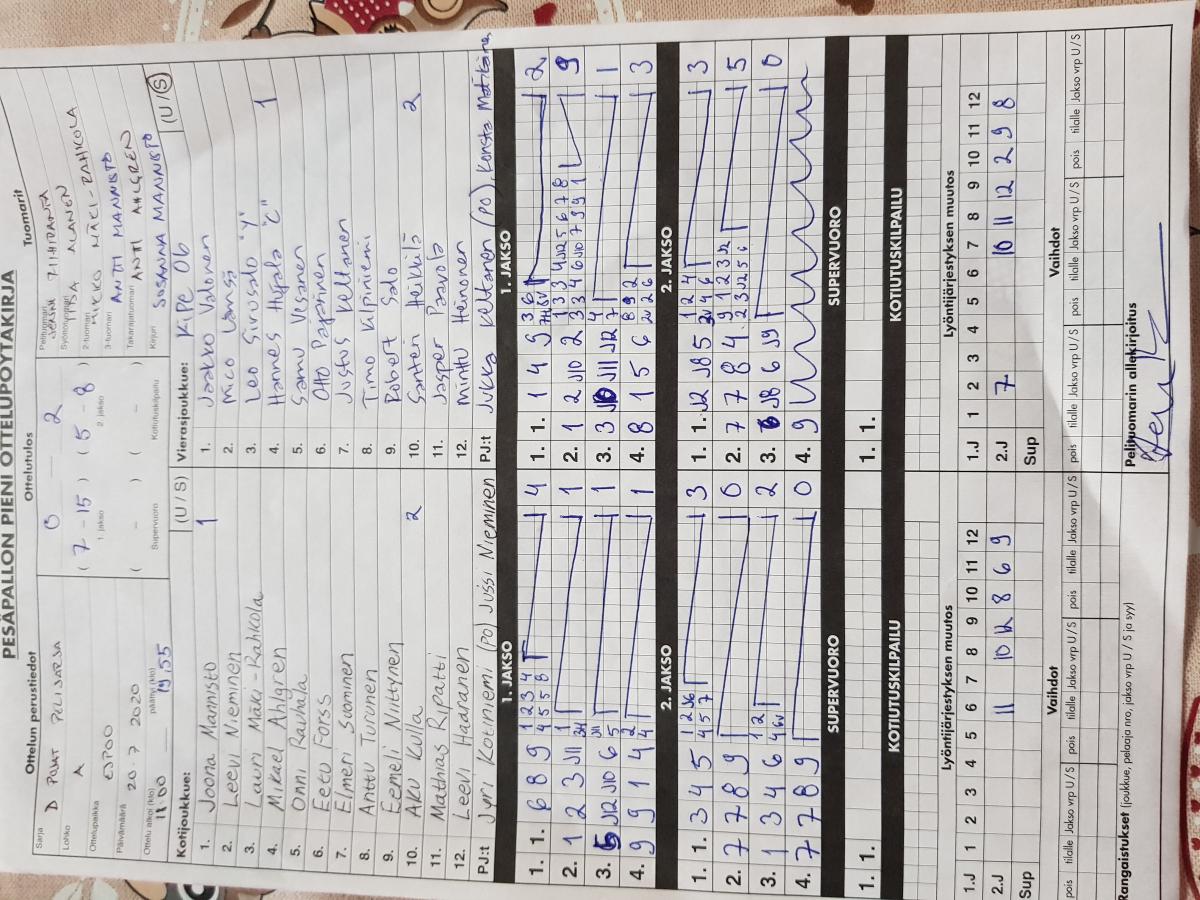 PESÄPALLON PIENI OTTELUPÖYTÄKIRJA
Ottelun perustiedot
Ottelutulos
Tuomarit
Sarja D POJAT PELISARJA
Lohko A
Ottelupaikka ESPOO
Päivämäärä 20.7 2020
Ottelu alkoi (klo) 18.00 päättyi (klo) 19.55
0 2
( 7 - 15 ) ( 5 - 8 )
1. jakso 2. jakso
( - ) ( - )
Supervuoro Kotiutuskilpailu
Pelituomari
Syöttötuomari ALANEN
2-tuomari MIKKO MÄKI-RAHKOLA
3-tuomari ANTTI MÄNNISTÖ
Takarajatuomari ANTTI AHLGREN
Kirjuri SUSANNA MÄNNISTÖ
Kotijoukkue: (U / S)
1. Joona Männistö 1
2. Leevi Nieminen
3. Lauri Mäki-Rahkola
4. Mikael Ahlgren
5. Onni Rauhala
6. Eetu Forss
7. Elmeri Suominen
8. Anttu Turunen
9. Eemeli Niittynen
10. Aku Kulla 2
11. Mathias Ripatti
12. Leevi Haaranen
PJ:t Jyri Kotiniemi (PO) Jussi Nieminen
Vierasjoukkue: KiPe Ob (U / S)
1. Jaakko Valonen
2. Mico Länsä
3. Leo Sirussalo "Y"
4. Hannes Hyjälä "C" 1
5. Samu Vesanen
6. Otto Papinen
7. Justus Keltanen
8. Timo Kilpiniemi
9. Robert Salo
10. Santeri Heikilä 2
11. Jasper Paavola
12. Minttu Heinonen
PJ:t Jukka Keltanen (PO), Konsta Matikainen
1. JAKSO
1. 1. 6 8 9 1 2 3 4 4
4 5 5 8
2. 1 2 3 J11 1 1
3. 5 J12 J10 6 5 1
4. 9 9 1 4 2 1
4
2. JAKSO
1. 1. 3 4 5 1 2 3
4 5 7
2. 7 7 8 9 0
3. 1 3 4 6 1 2 2
4. 7 7 8 9 0
SUPERVUORO
1. 1.
KOTIUTUSKILPAILU
Lyöntijärjestyksen muutos
1.J 1 2 3 4 5 6 7 8 9 10 11 12
2.J 11 10 12 8 6 9
Sup
Vaihdot
pois tilalle Jakso vrp U / S pois tilalle Jakso vrp U / S pois tilalle Jakso vrp U / S
Rangaistukset (joukkue, pelaaja nro, jakso vrp U / S ja syy)
1. JAKSO
1. 1. 1 4 9 3 6 2
2. 1 2 J10 2 1 3 3 4 J12 5 6 7 8 9
3 3 4 6 J10 7 9 9 1
3. 3 J10 J11 J12 4 1
7
4. 8 1 5 6 8 9 2 3
2. JAKSO
1. 1. J2 J8 5 1 2 4 3
2. 7 7 8 4 9 1 2 3 5
3. 6 J8 6 J9 0
4. 9
SUPERVUORO
1. 1.
KOTIUTUSKILPAILU
Lyöntijärjestyksen muutos
1.J 1 2 3 4 5 6 7 8 9 10 11 12
2.J 7 10 11 12 2 9 8
Sup
Vaihdot
pois tilalle Jakso vrp U / S pois tilalle Jakso vrp U / S pois tilalle Jakso vrp U / S
Pelituomarin allekirjoitus